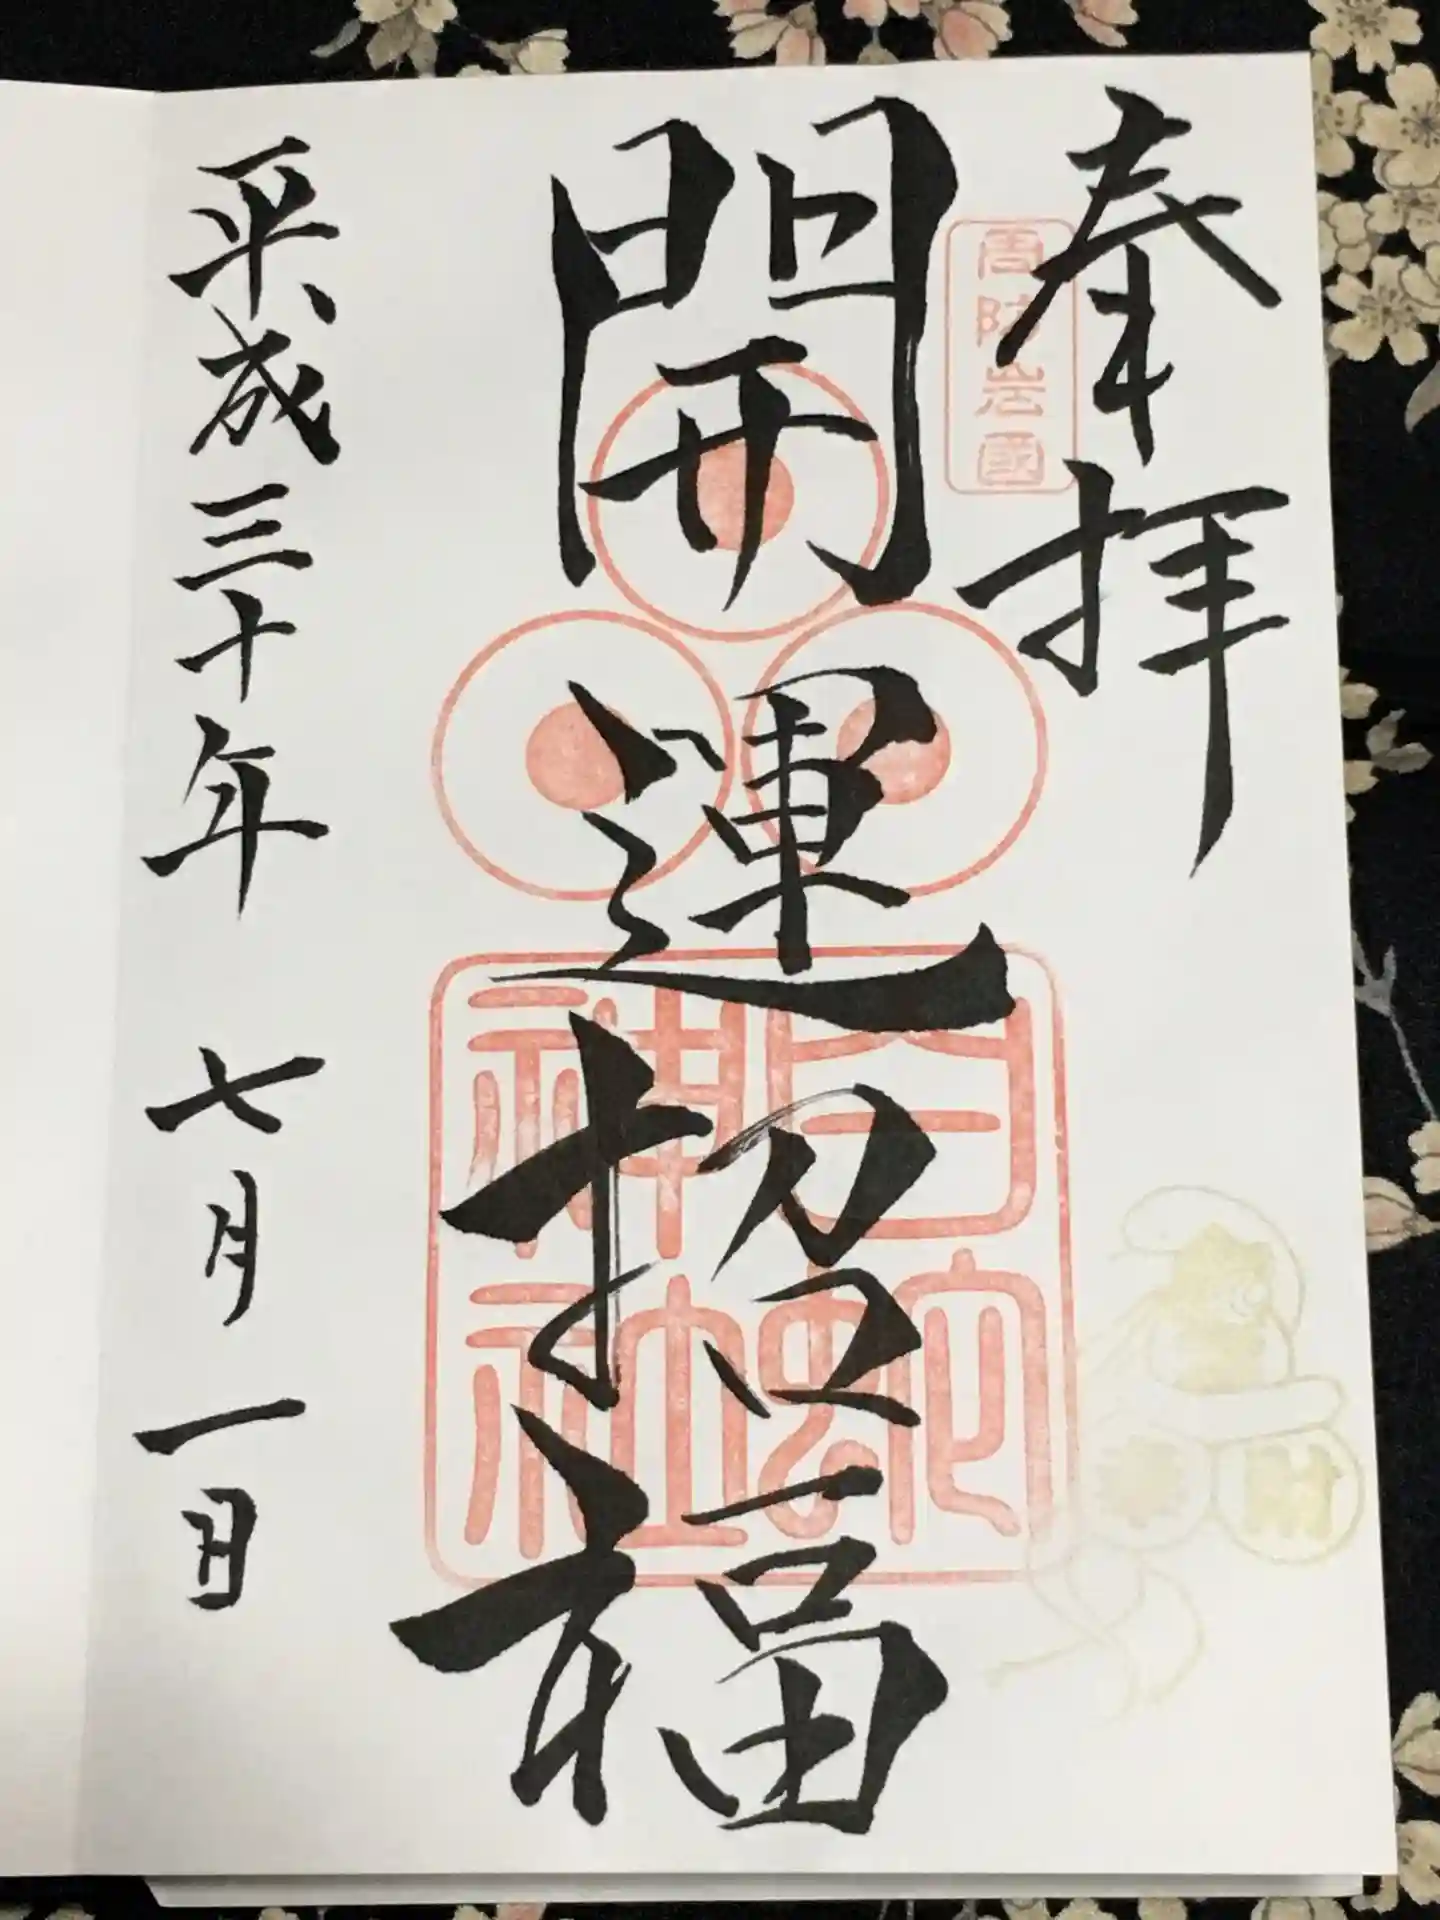 奉拝
周防岩國
開運招福
白蛇
神社
平成三十年 七月一日